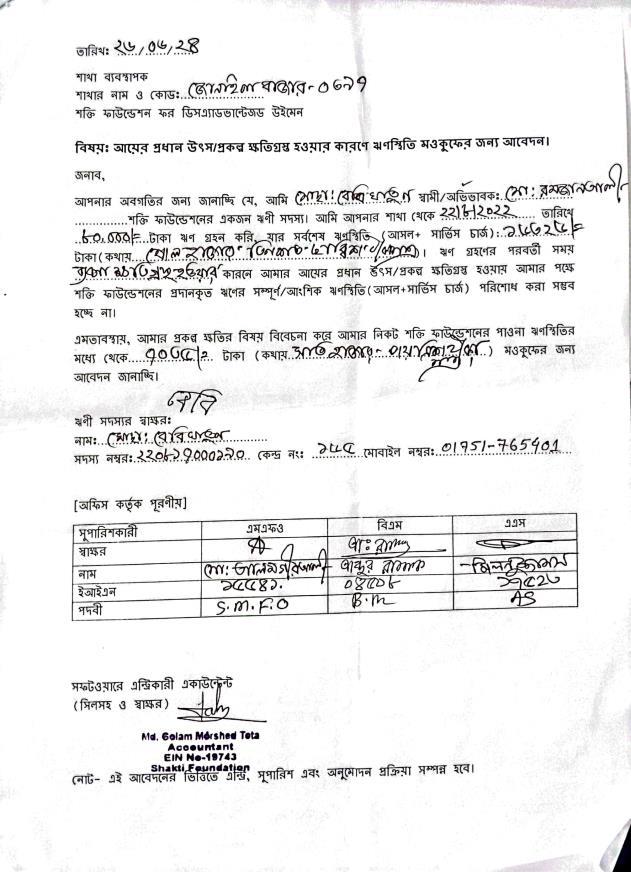 তারিখ: ২৬/০৬/২৪
শাখা ব্যবস্থাপক
শাখার নাম ও কোড: বাজার-০৬৭৭
শক্তি ফাউন্ডেশন ফর ডিসএ্যাডভান্টেজড উইমেন
বিষয়: আয়ের প্রধান উৎস/প্রকল্প ক্ষতিগ্রস্থ হওয়ার কারণে ঋণস্থিতি মওকুফের জন্য আবেদন।
জনাব,
আপনার অবগতির জন্য জানাচ্ছি যে, আমি মোছা: বেবি খাতুন স্বামী/অভিভাবক: মো: রমজান আলী
শক্তি ফাউন্ডেশনের একজন ঋণী সদস্য। আমি আপনার শাখা থেকে 22/৮/2022 তারিখে
৮০,০০০/= টাকা ঋণ গ্রহন করি, যার সর্বশেষ ঋণস্থিতি (আসল+ সার্ভিস চার্জ):
টাকা (কথায়:)। ঋণ গ্রহণের পরবর্তী সময়
ক্ষতিগ্রস্থ হওয়ার কারনে আমার আয়ের প্রধান উৎস/প্রকল্প ক্ষতিগ্রস্থ হওয়ায় আমার পক্ষে
শক্তি ফাউন্ডেশনের প্রদানকৃত ঋণের সম্পূর্ণ/আংশিক ঋণস্থিতি (আসল+সার্ভিস চার্জ) পরিশোধ করা সম্ভব
হচ্ছে না।
এমতাবস্থায়, আমার প্রকল্প ক্ষতির বিষয় বিবেচনা করে আমার নিকট শক্তি ফাউন্ডেশনের পাওনা ঋণস্থিতির
মধ্যে থেকে টাকা (কথায় সাত হাজার) মওকুফের জন্য
আবেদন জানাচ্ছি।
বেবি
ঋণী সদস্যর স্বাক্ষর:
নাম: মোছা: বেবি খাতুন
সদস্য নম্বর: কেন্দ্র নং: মোবাইল নম্বর: 01751-765901
[অফিস কর্তৃক পূরণীয়]
সুপারিশকারী এমএফও বিএম এএস
স্বাক্ষর
নাম মো: আলমগীর আলী
ইআইএন
পদবী S.M.F.O B.M AS
সফটওয়ারে এন্ট্রিকারী একাউন্টেন্ট
(সিলসহ ও স্বাক্ষর)
Md. Golam Morshed Tota
Accountant
EIN No-19743
Shakti Foundation
নোট- এই আবেদনের ভিত্তিতে এন্ট্রি, সুপারিশ এবং অনুমোদন প্রক্রিয়া সম্পন্ন হবে।